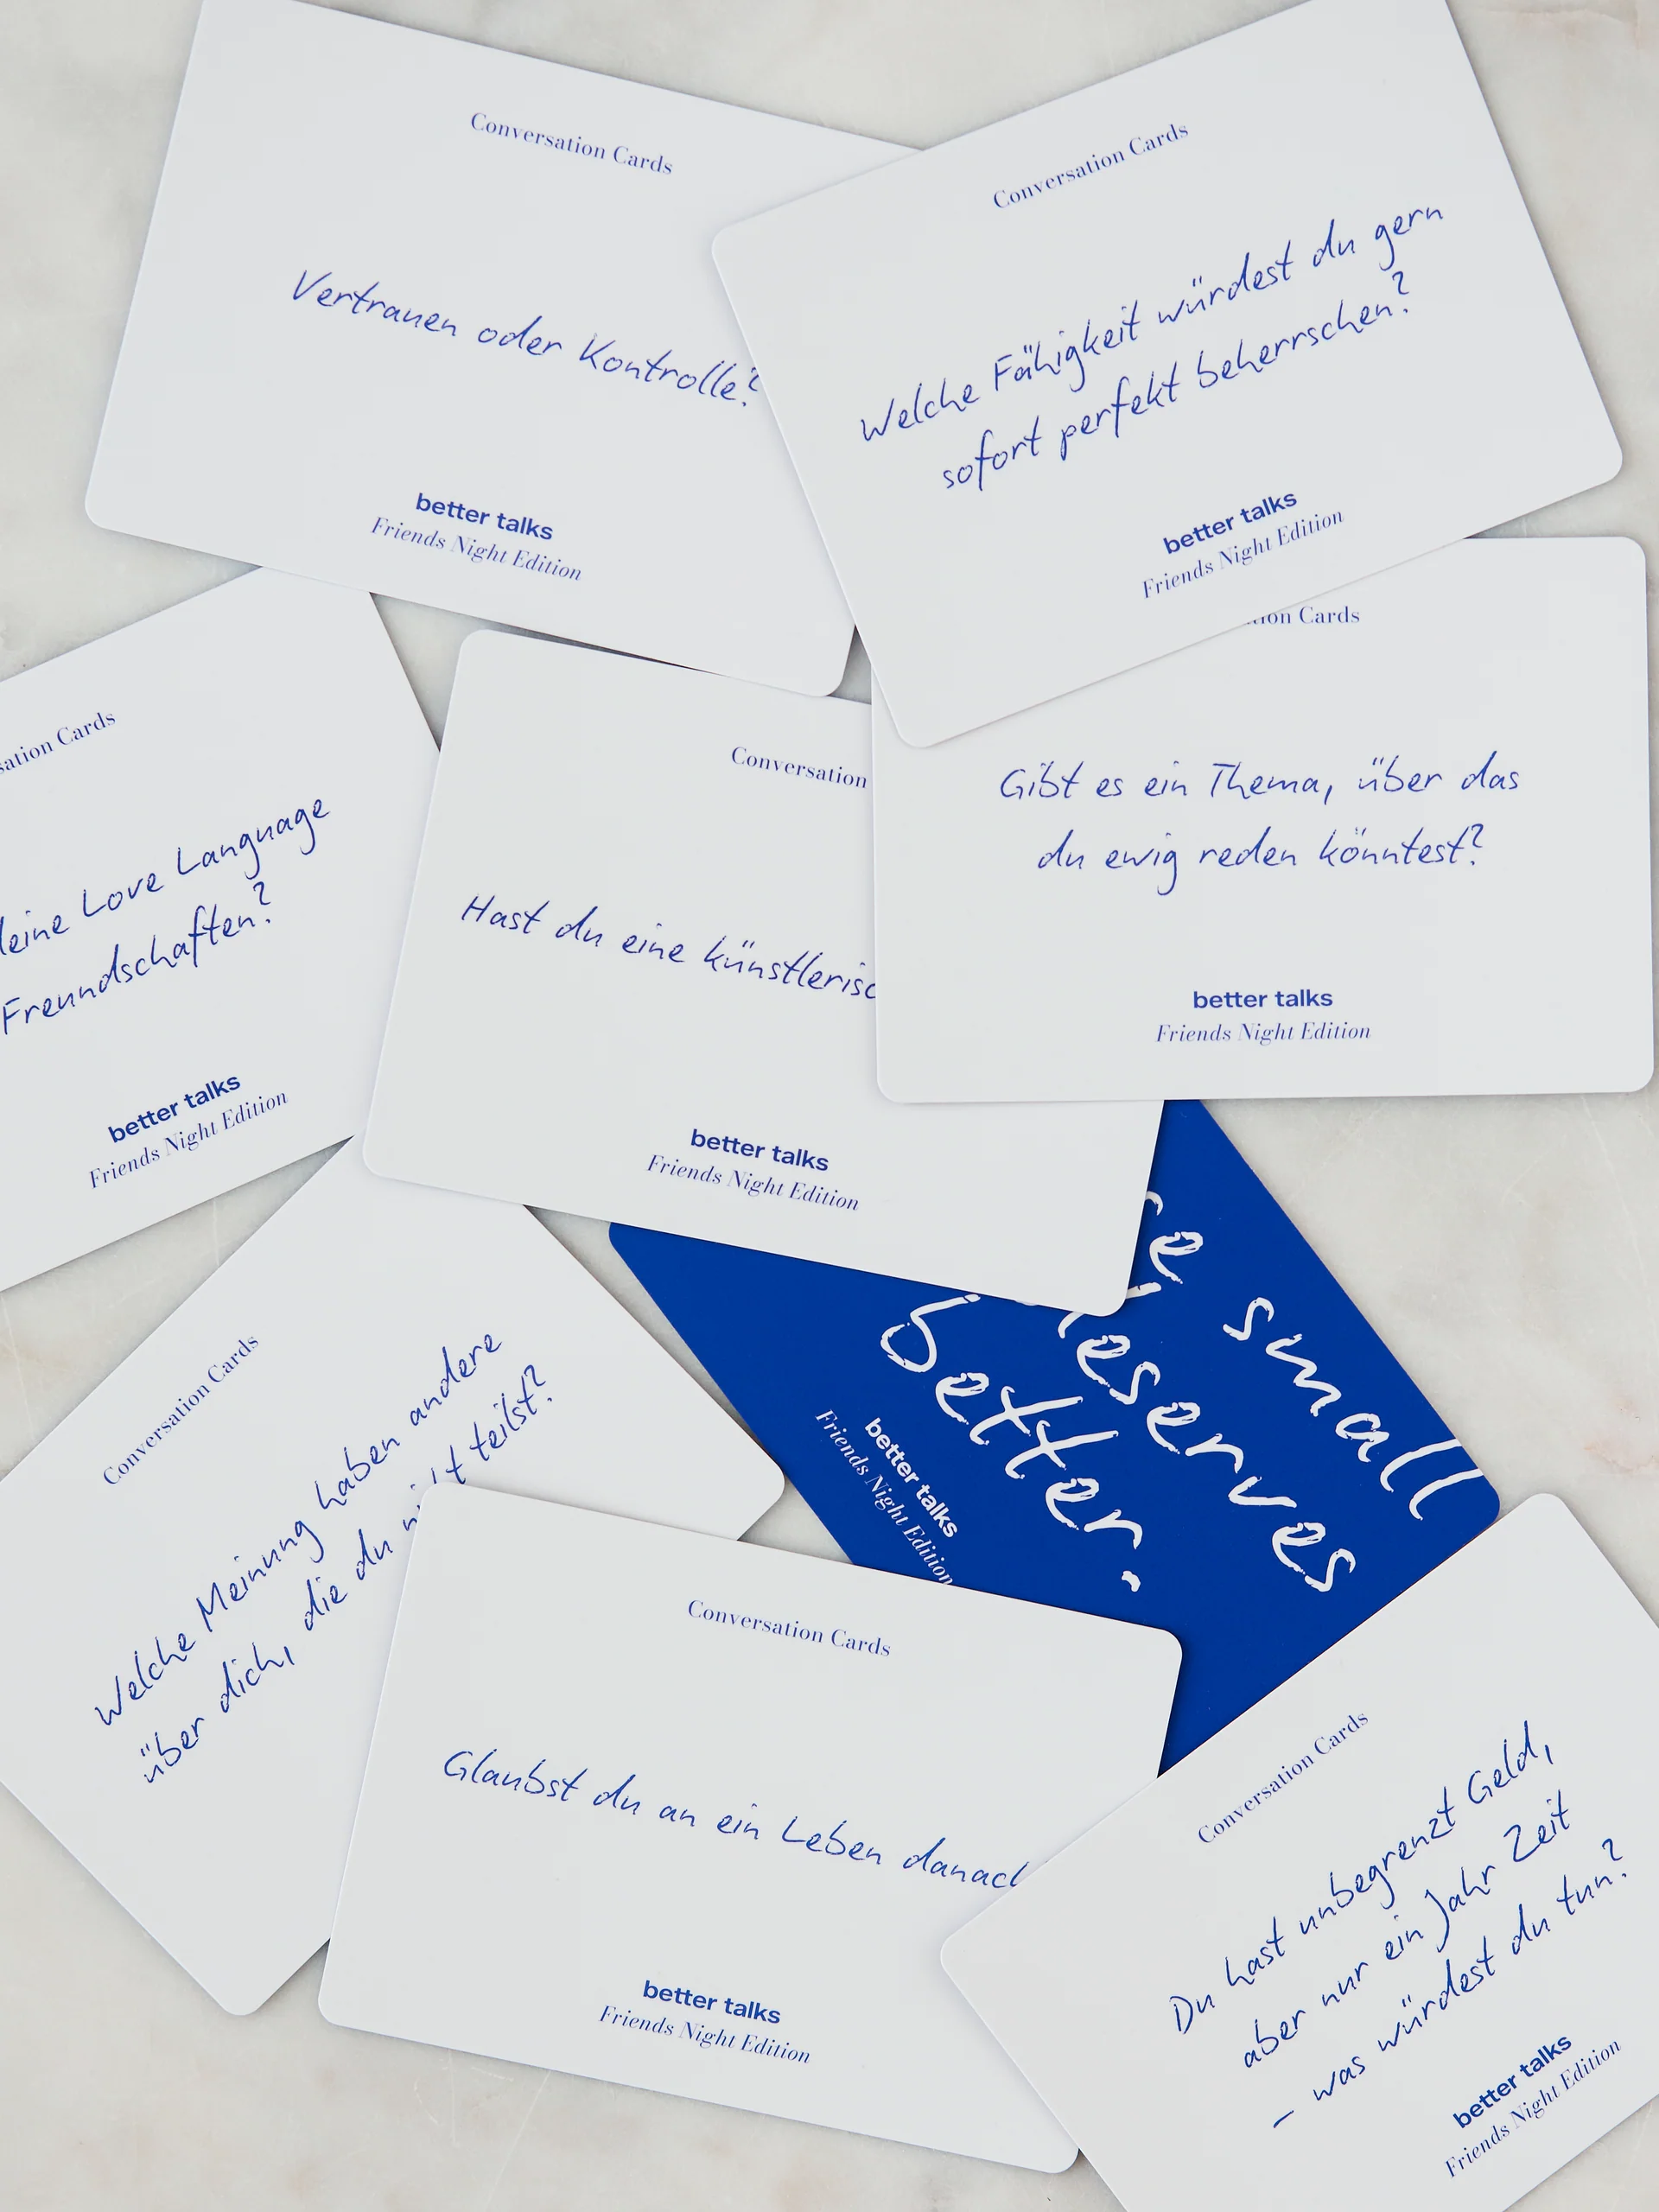 Conversation Cards
Vertrauen oder Kontrolle?
better talks
Friends Night Edition
Conversation Cards
Welche Fähigkeit würdest du gern
sofort perfekt beherrschen?
better talks
Friends Night Edition
Cards
Gibt es ein Thema, über das
du ewig reden könntest?
better talks
Friends Night Edition
Cards
Love Language
Freundschaften?
better talks
Friends Night Edition
Conversation
Hast du eine
better talks
Friends Night Edition
small
better.
better talks
Friends Night Edition
Conversation Cards
Welche Meinung haben andere
über dich, die du teilst?
Conversation Cards
Glaubst du an ein Leben
better talks
Friends Night Edition
Conversation Cards
Du hast unbegrenzt Geld,
aber nur ein Jahr Zeit
– was würdest du tun?
better talks
Friends Night Edition